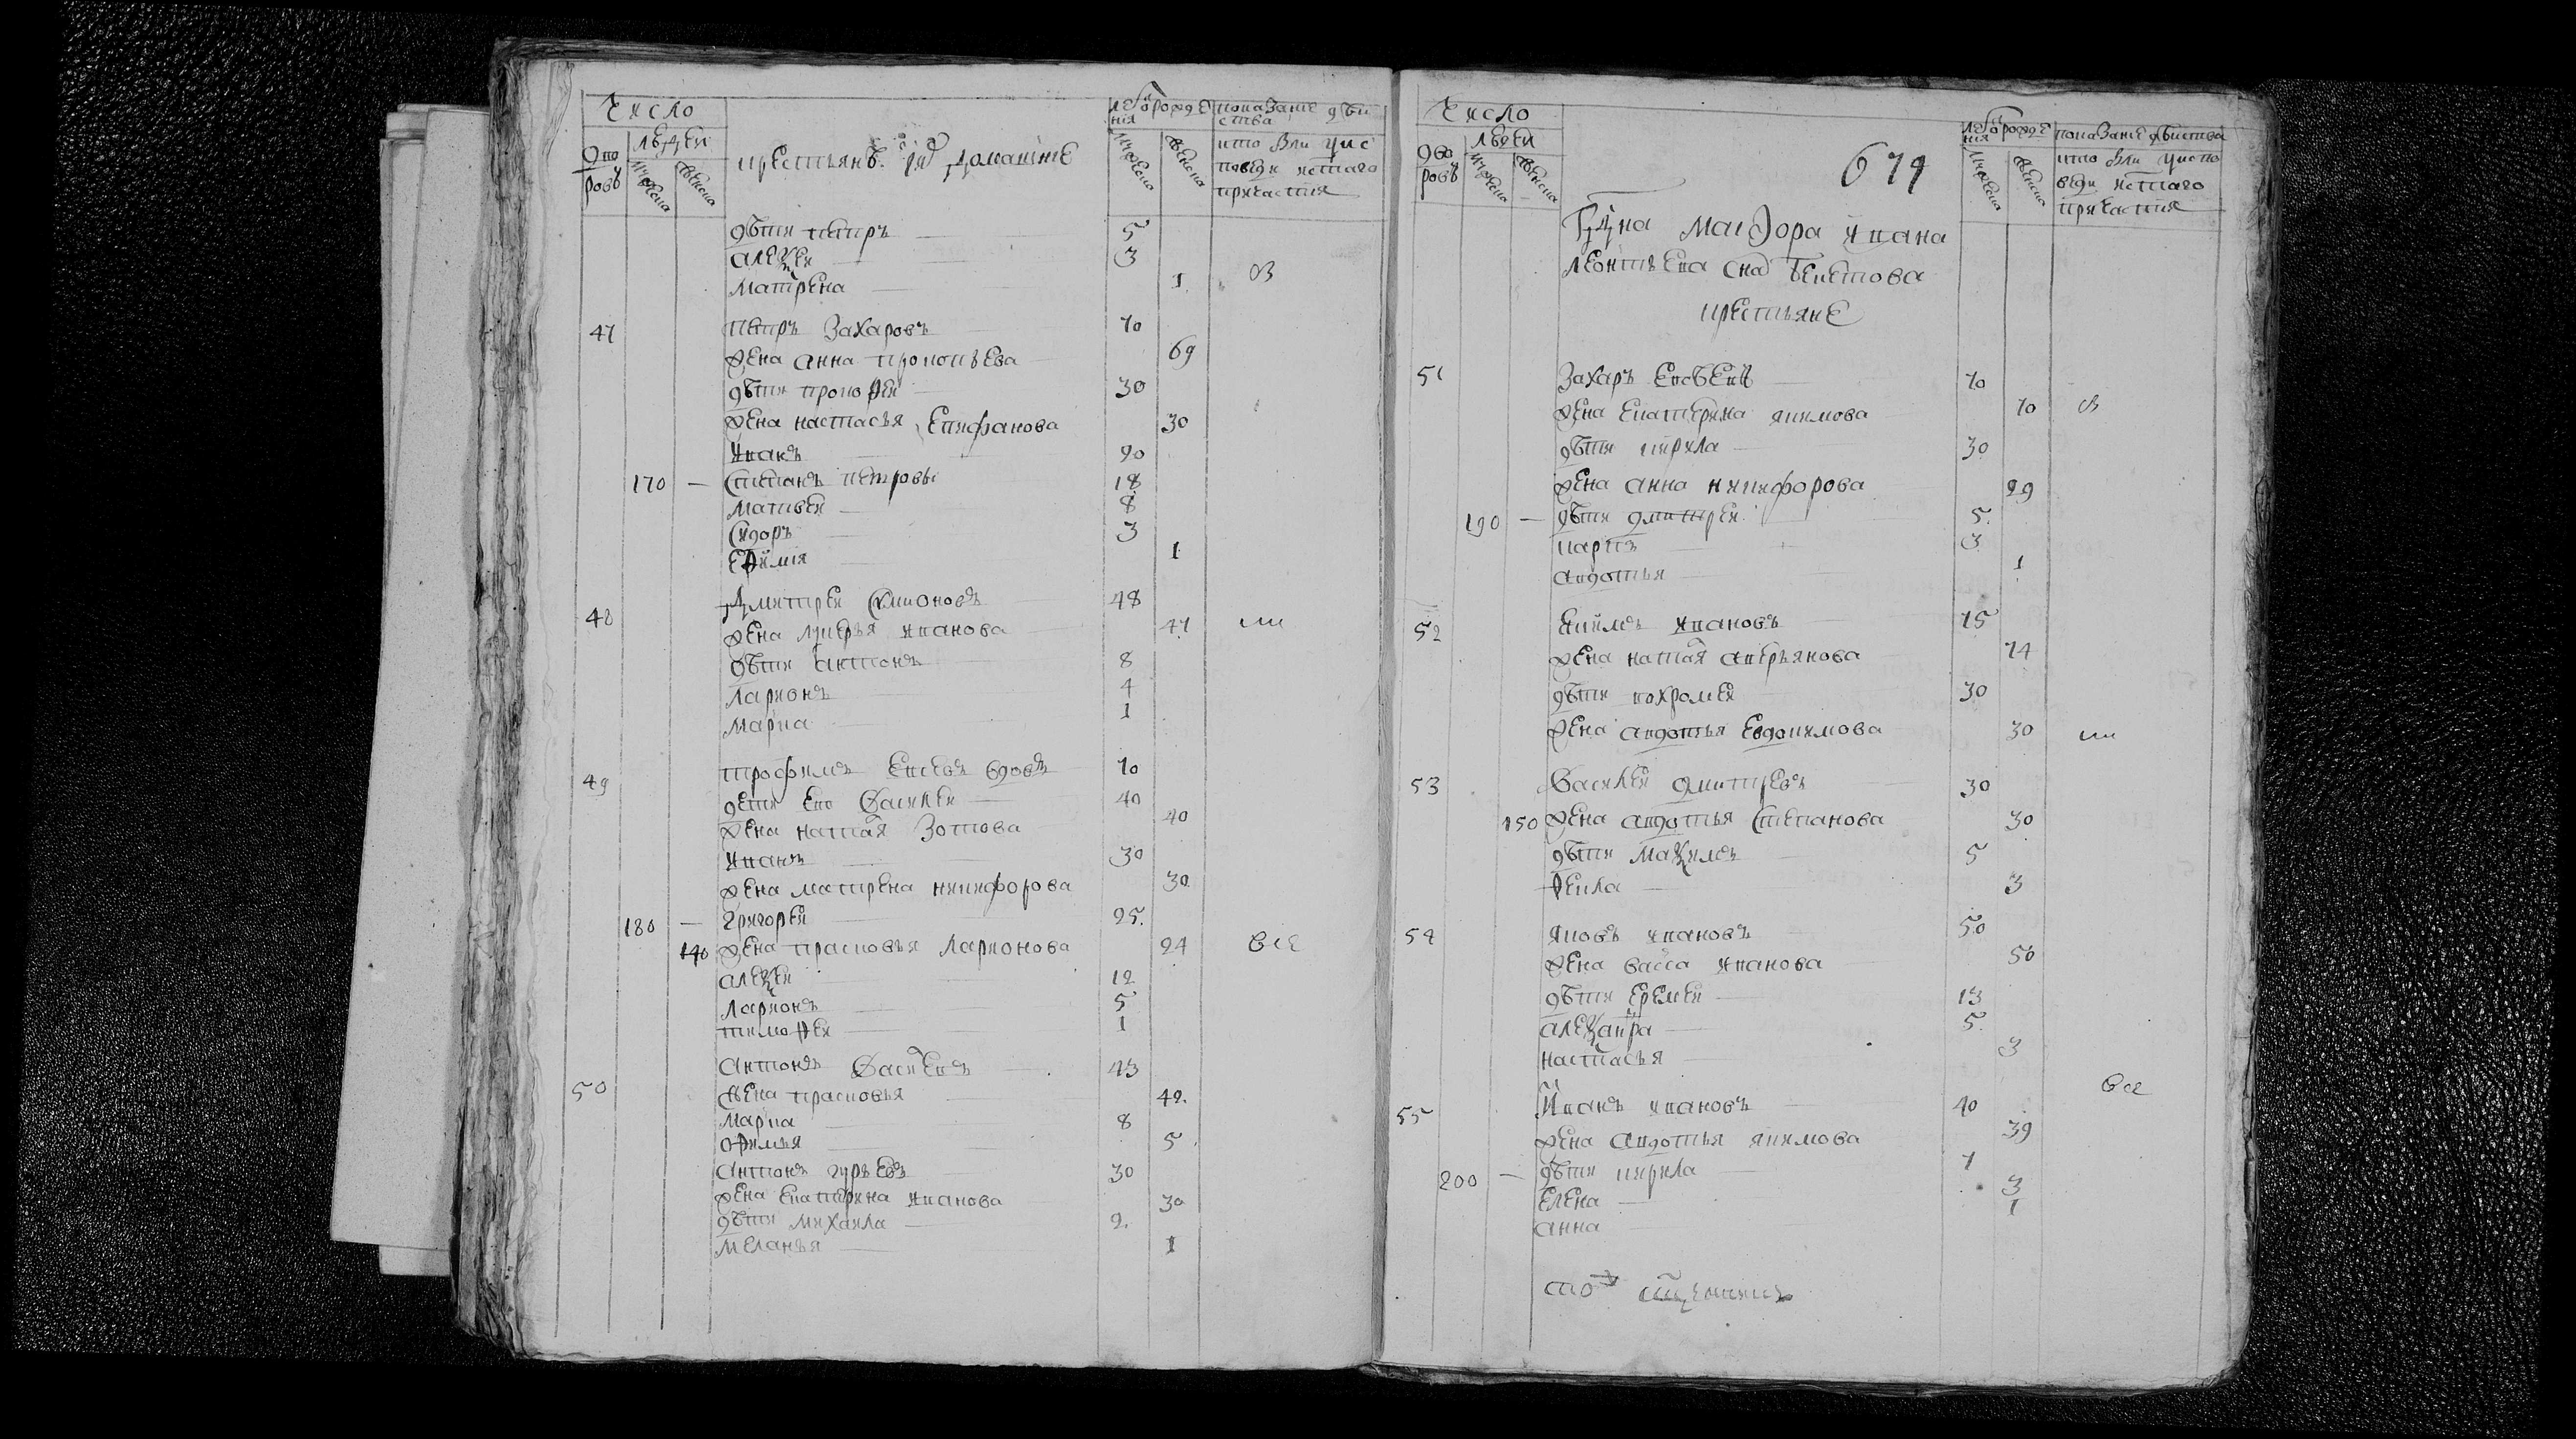 Число
Дво
ровъ
людей
мужеска
женска
крестьянъ. и их домашние
лета рожде
ния
мужеска
женска
показание дѣй
ства
кто былъ у ис
поведи и стаго
причастия
дѣти петръ 5
алеѯей 3
матрена 1 бы
47 петръ Захаровъ 70
жена анна прокопьева 69
дѣти прокофей 30
жена настасья Епифанова 30
Иванъ 20
170 — Степанъ петровы 18
матвей 8
Сидоръ 3
Ефимия 1
48 Дмитрей Симионовъ 48
жена лукерья иванова 47 ли
дѣти антонъ 8
ларионъ 4
марка 1
49 трофимъ вдовъ 70
дети ево Василей 40
жена наталя Зотова 40
Иванъ 30
жена матрена никифорова 30
180 — григорей 25
140 жена прасковья ларионова 24 все
алеѯей 12
ларионъ 5
тимофей 1
50 Антонъ Васильевъ 43
жена прасковья 42
марка 8
офимья 5
Антонъ гурьевъ 30
жена Екатерина иванова 30
дѣти михаила 2
меланья 1
Число
Дво
ровъ
людей
мужеска
женска
679
лета рожде
ния
мужеска
женска
показание дѣиства
кто былъ у испо
веди и стаго
причастия
Гдна маиора ивана
леонтьева сна бекетова
крестьяне
51 Захаръ Евсѣевъ 70
жена Екатерина якимова 70 бы
дѣти кирила 30
жена анна никифорова 29
190 — дѣти дмитрей 5
карпъ 3
авдотья 1
52 Екимъ ивановъ 75
жена наталя аверьянова 74
дѣти вахромей 30
жена авдотья Евдокимова 30 ли
53 Василей дмитревъ 30
150 жена авдотья Степанова 30
дѣти маѯимъ 5
фекла 3
54 яковъ ивановъ 50
жена васса иванова 50
дѣти Еремей 13
алеѯандра 5
настасья 3
55 Иванъ ивановъ 40 все
жена авдотья якимова 39
200 — дѣти кирила 7
Елена 3
анна 1